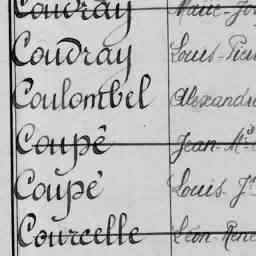 Coudray Marie-Jo
Coudray Louis-Pier
Coulombel Alexandre
Coupê Jean-Mie
Coupé Louis-J
Courcelle Léon-René